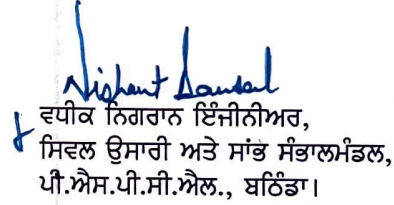 Nishant Bansal
ਵਧੀਕ ਨਿਗਰਾਨ ਇੰਜੀਨੀਅਰ,
ਸਿਵਲ ਉਸਾਰੀ ਅਤੇ ਸਾਂਭ ਸੰਭਾਲਮੰਡਲ,
ਪੀ.ਐਸ.ਪੀ.ਸੀ.ਐਲ., ਬਠਿੰਡਾ।